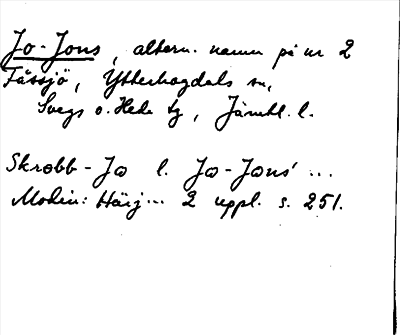 Jo-Jons, altern. namn på nr 2
Fåssjö, Ytterhogdals sn,
Svegs o. Hede tg, Jämtl. l.
Skrobb-Jo l. Jo-Jons' ...
Modin: Härj... 2 uppl. s. 251.